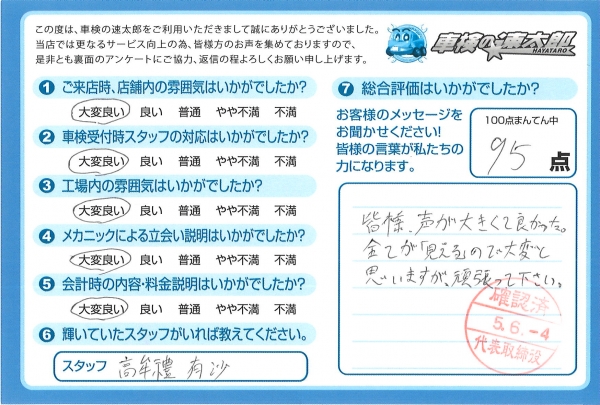 この度は、車検の速太郎をご利用いただきまして誠にありがとうございました。
当店では更なるサービス向上の為、皆様方のお声を集めておりますので、
是非とも裏面のアンケートにご協力、返信の程よろしくお願い申し上げます。
車検の速太郎
HAYATARO
1 ご来店時、店舗内の雰囲気はいかがでしたか?
大変良い 良い 普通 やや不満 不満
2 車検受付時スタッフの対応はいかがでしたか?
大変良い 良い 普通 やや不満 不満
3 工場内の雰囲気はいかがでしたか?
大変良い 良い 普通 やや不満 不満
4 メカニックによる立会い説明はいかがでしたか?
大変良い 良い 普通 やや不満 不満
5 会計時の内容・料金説明はいかがでしたか?
大変良い 良い 普通 やや不満 不満
6 輝いていたスタッフがいれば教えてください。
スタッフ 高牟禮 有沙
7 総合評価はいかがでしたか?
お客様のメッセージを
お聞かせください!
皆様の言葉が私たちの
力になります。
100点まんてん中
95 点
皆様、声が大きくて良かった。
全てが「見える」ので大変だと
思いますが、頑張って下さい。
確認済
5.6.-4
代表取締役